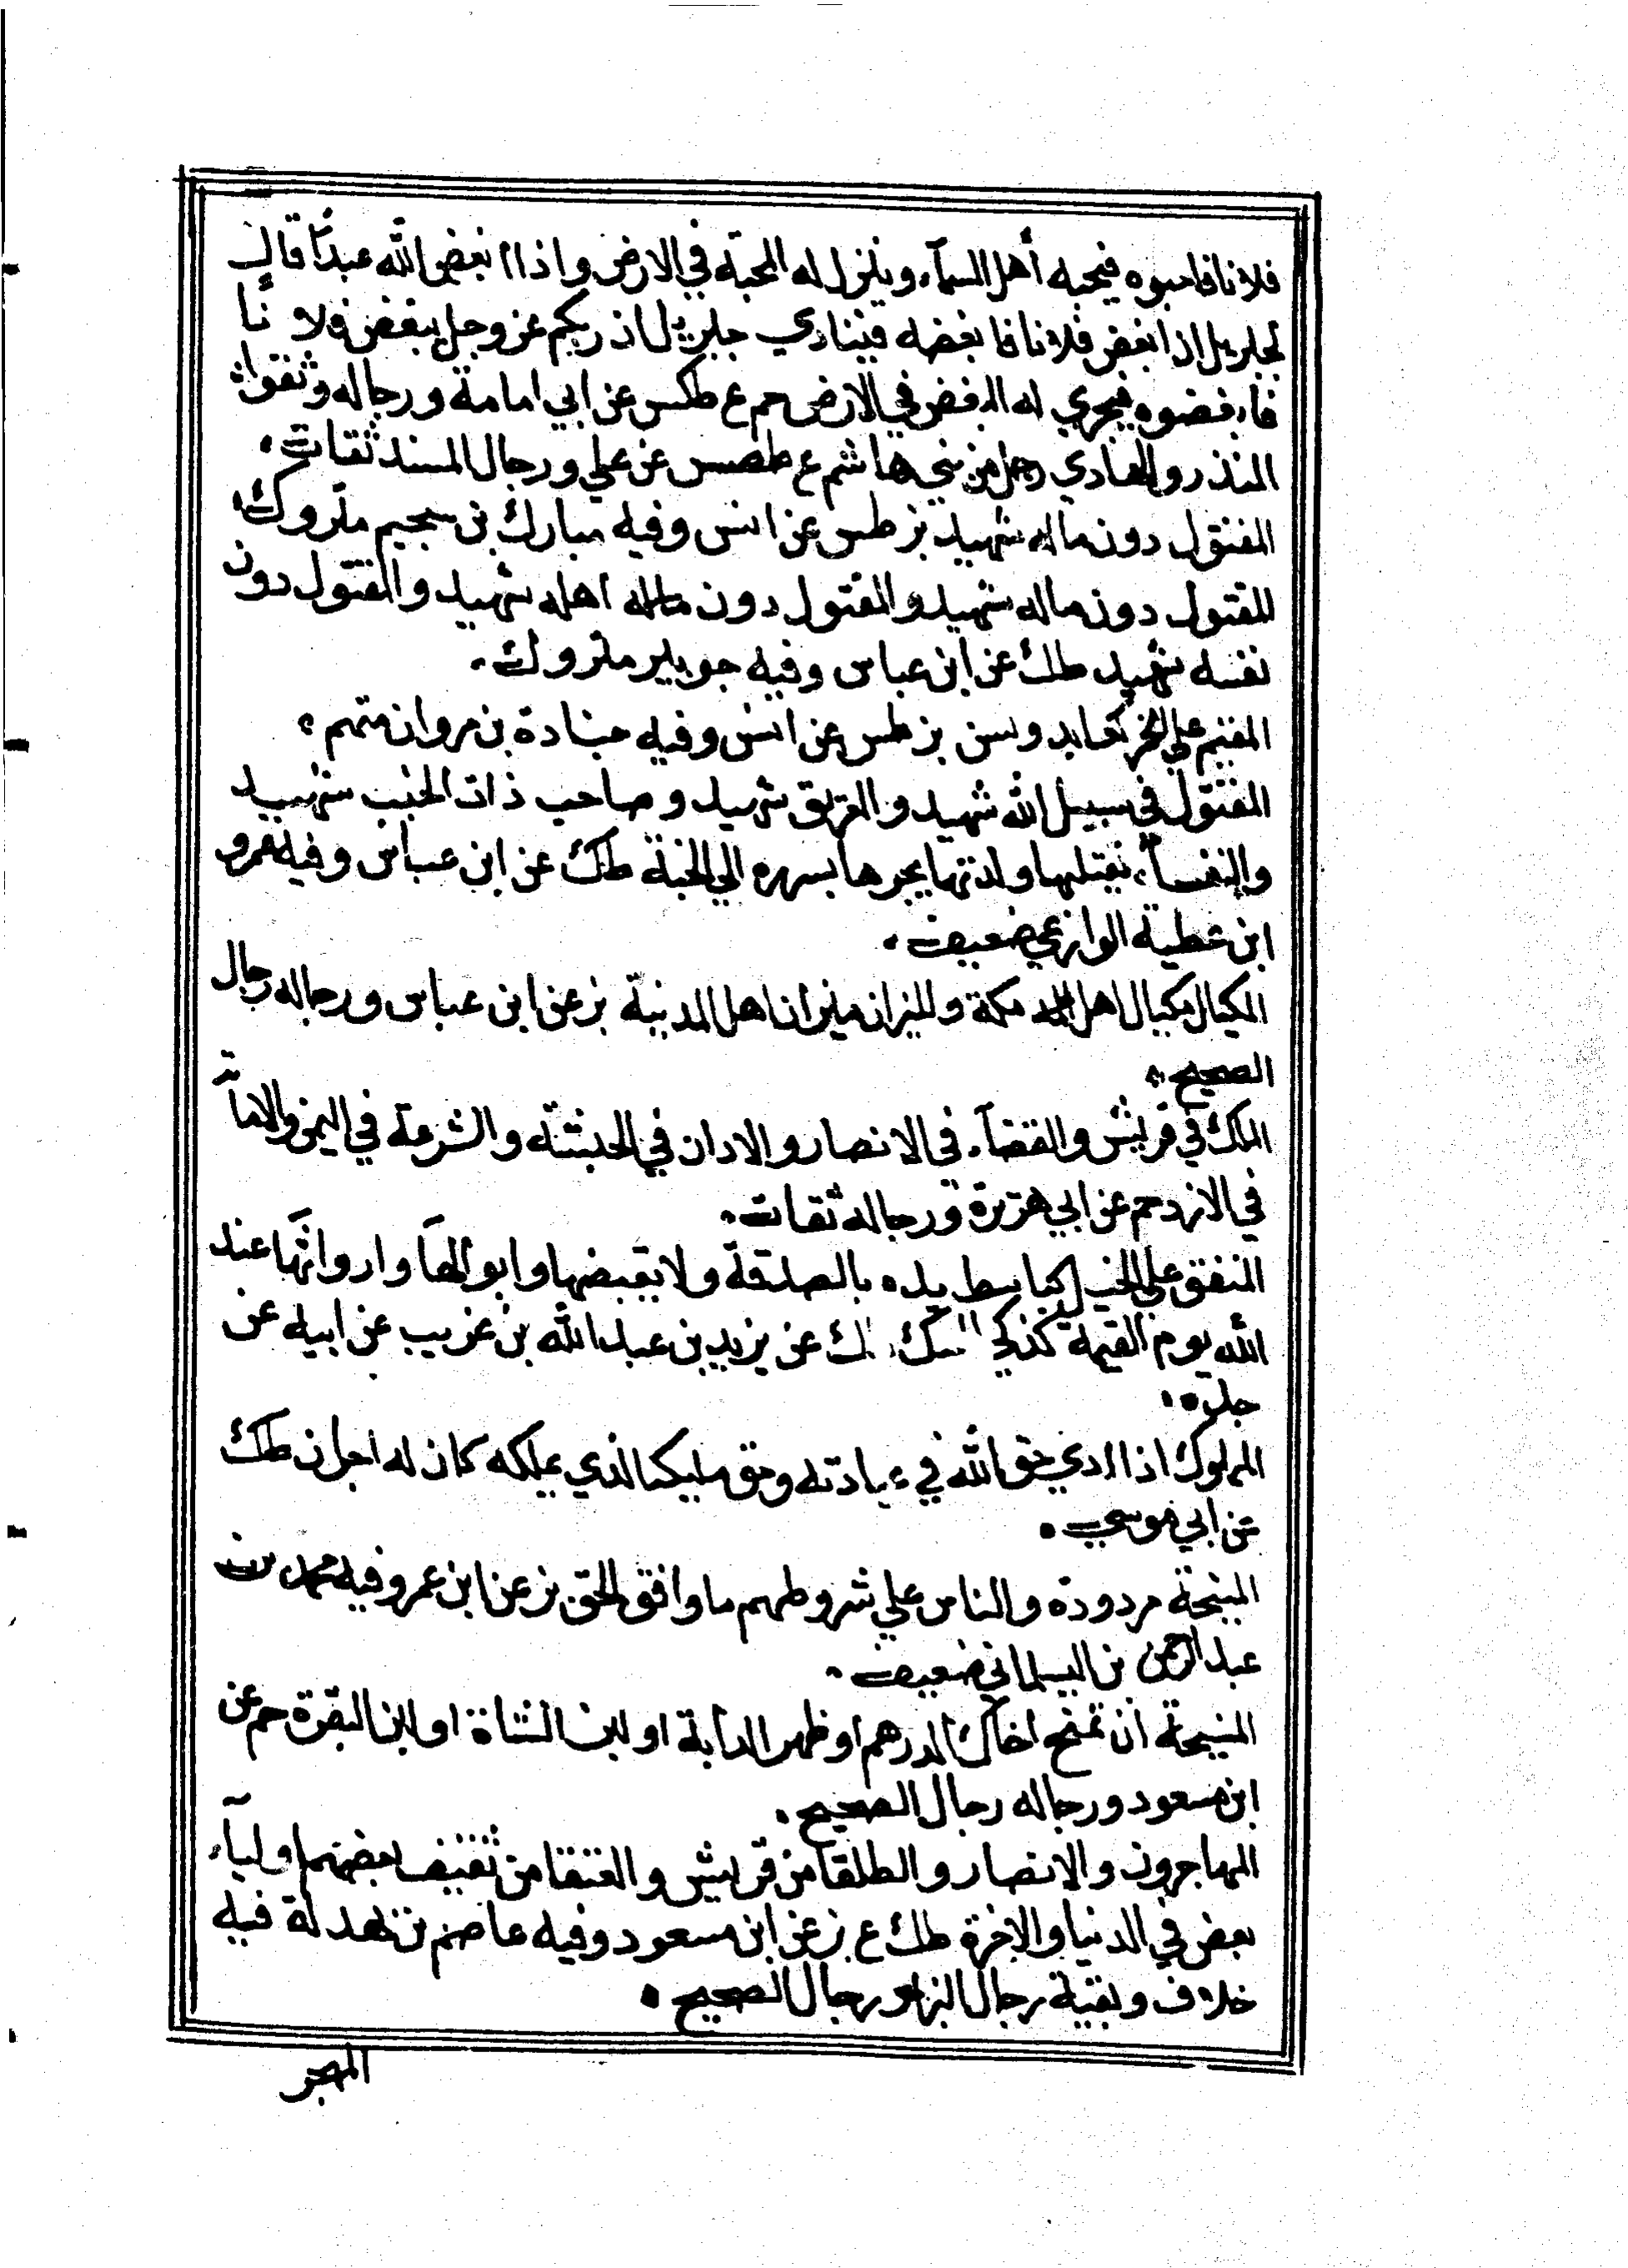 فلانا فاحبوه فيحبه أهل السمآء وينزل له المحبة في الارض واذا ابغض الله عبدًا قال
لجبريل اذا ابغض فلانا فابغضه فينادي جبريل ان ربكم عز وجل يبغض فلانًا
فابغضوه فيجري له البغض في الارض حم ع طكس عن ابي امامة ورجاله وثقوا،
المنذر والهادي رجل من بني هاشم ع طصس عن علي ورجال المسند ثقات،
المقتول دون ماله شهيد بز طس عن انس وفيه مبارك بن سحيم متروك،
المقتول دون ماله شهيد والمقتول دون اهله شهيد والمقتول دون
نفسه شهيد طك عن ابن عباس وفيه جويبر متروك.
المقيم على الخمر كعابد وسن بز طس عن انس وفيه جنادة بن مروان متهم،
المقتول في سبيل الله شهيد والغريق شهيد وصاحب ذات الجنب شهيد
والنفسآء يقتلها ولدتها يجرها بسرره الي الجنة طك عن ابن عباس وفيه عمرو
ابن عطية الوازعي ضعيف،
المكيال مكيال اهل مكة والميزان ميزان اهل المدينة بز عن ابن عباس ورجاله رجال
الصحيح،
الملك في قريش والقضآء في الانصار والاذان في الحبشة والشرعة في اليمن والامانة
في الازد حم عن ابي هريرة ورجاله ثقات.
المنفق علي الخيل كباسط يده بالصدقة ولا يقبضها وابوالها وارواثها عند
الله يوم القيمة كذكي المسك طك عن يزيد بن عبد الله بن غريب عن ابيه عن
جده،
المملوك اذا ادي حق الله في عبادته وحق مليكه الذي يملكه كان له اجران طك
عن ابي موسي.
المنيحة مردودة والناس علي شروطهم ما وافق الحق بز عن ابن عمر وفيه محمد بن
عبد الرحمن بن البيلماني ضعيف،
المنيحة ان تمنح اخاك الدرهم او ظهر الدابة او لبن الشاة او لبن البقرة حم عن
ابن مسعود ورجاله رجال الصحيح.
المهاجرون والانصار والطلقا من قريش والعتقا من ثقيف بعضهم اوليآء
بعض في الدنيا والاخرة طك ع بز عن ابن مسعود وفيه عاصم بن بهدلة فيه
خلاف وبقية رجال البزار رجال الصحيح.
المهجر